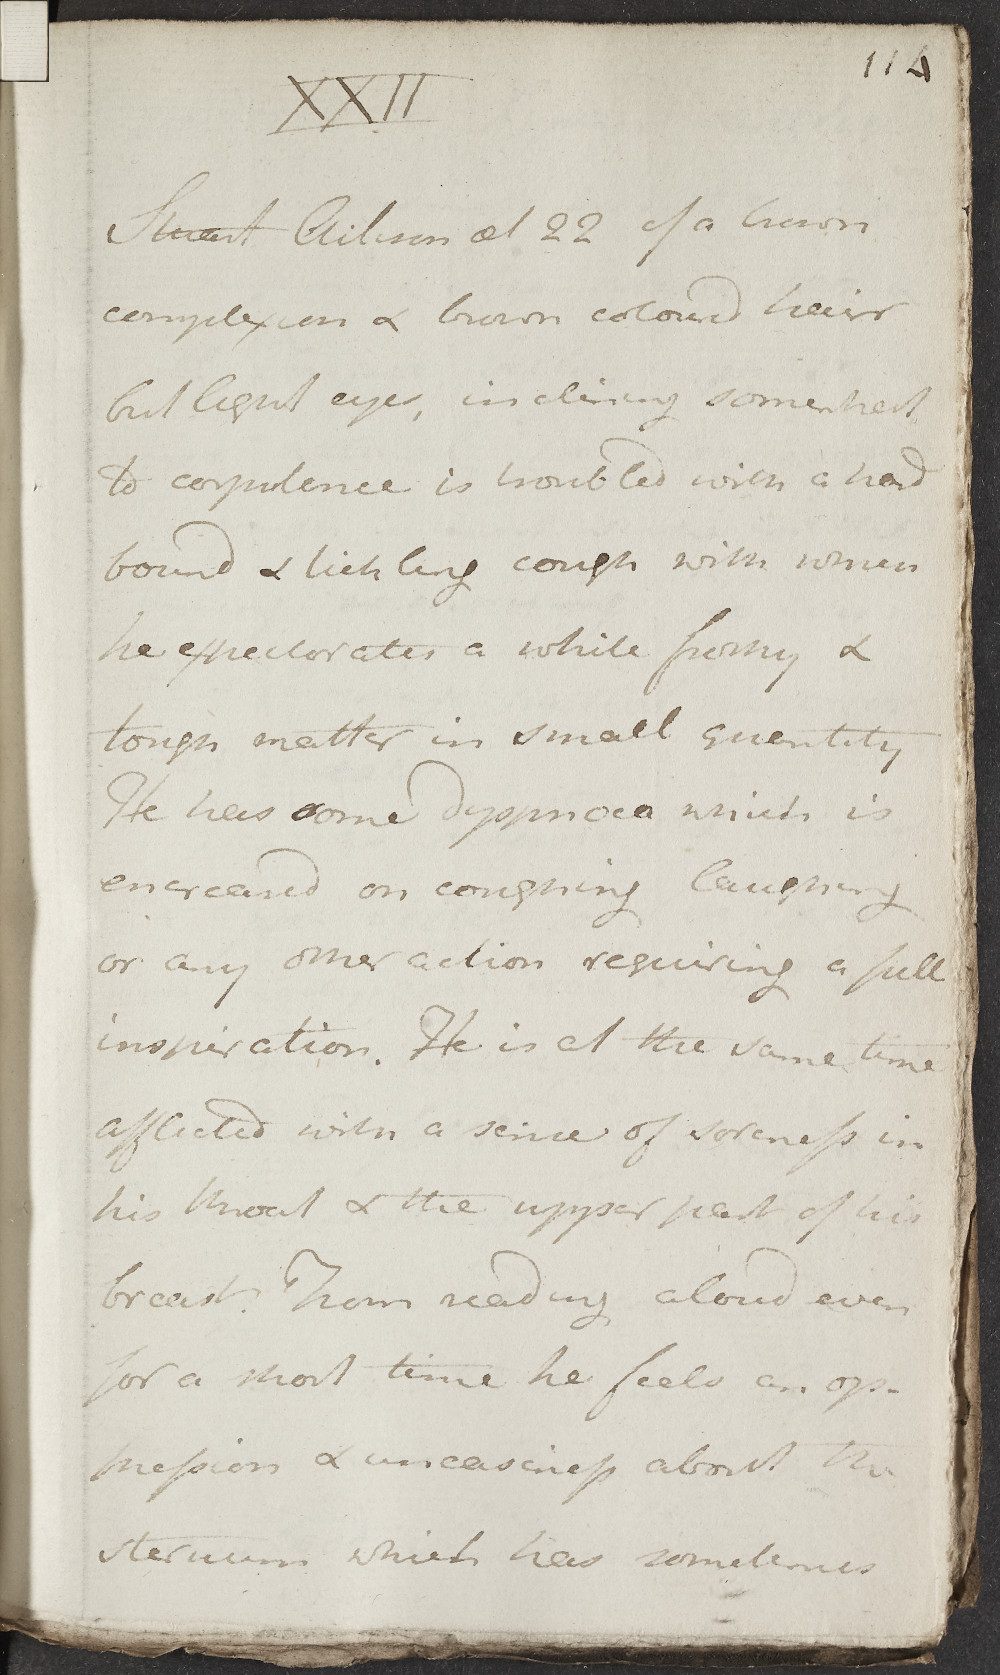 114
XXII
Stuart Gibson æt 22 of a brown
complexion & brown colourd hair
but light eyes, inclining somewhat
to corpulence is troubled with a hard
bound & tickling cough with which
he expectorates a white frothy &
tough matter in small quantity
He has some dyspnoea which is
encreased on coughing laughing
or any other action requiring a full
inspiration. He is at the same time
afflicted with a sense of soreness in
his throat & the upper part of his
breast. From reading aloud even
for a short time he feels an op-
pression & uneasiness about the
sternum which has sometimes